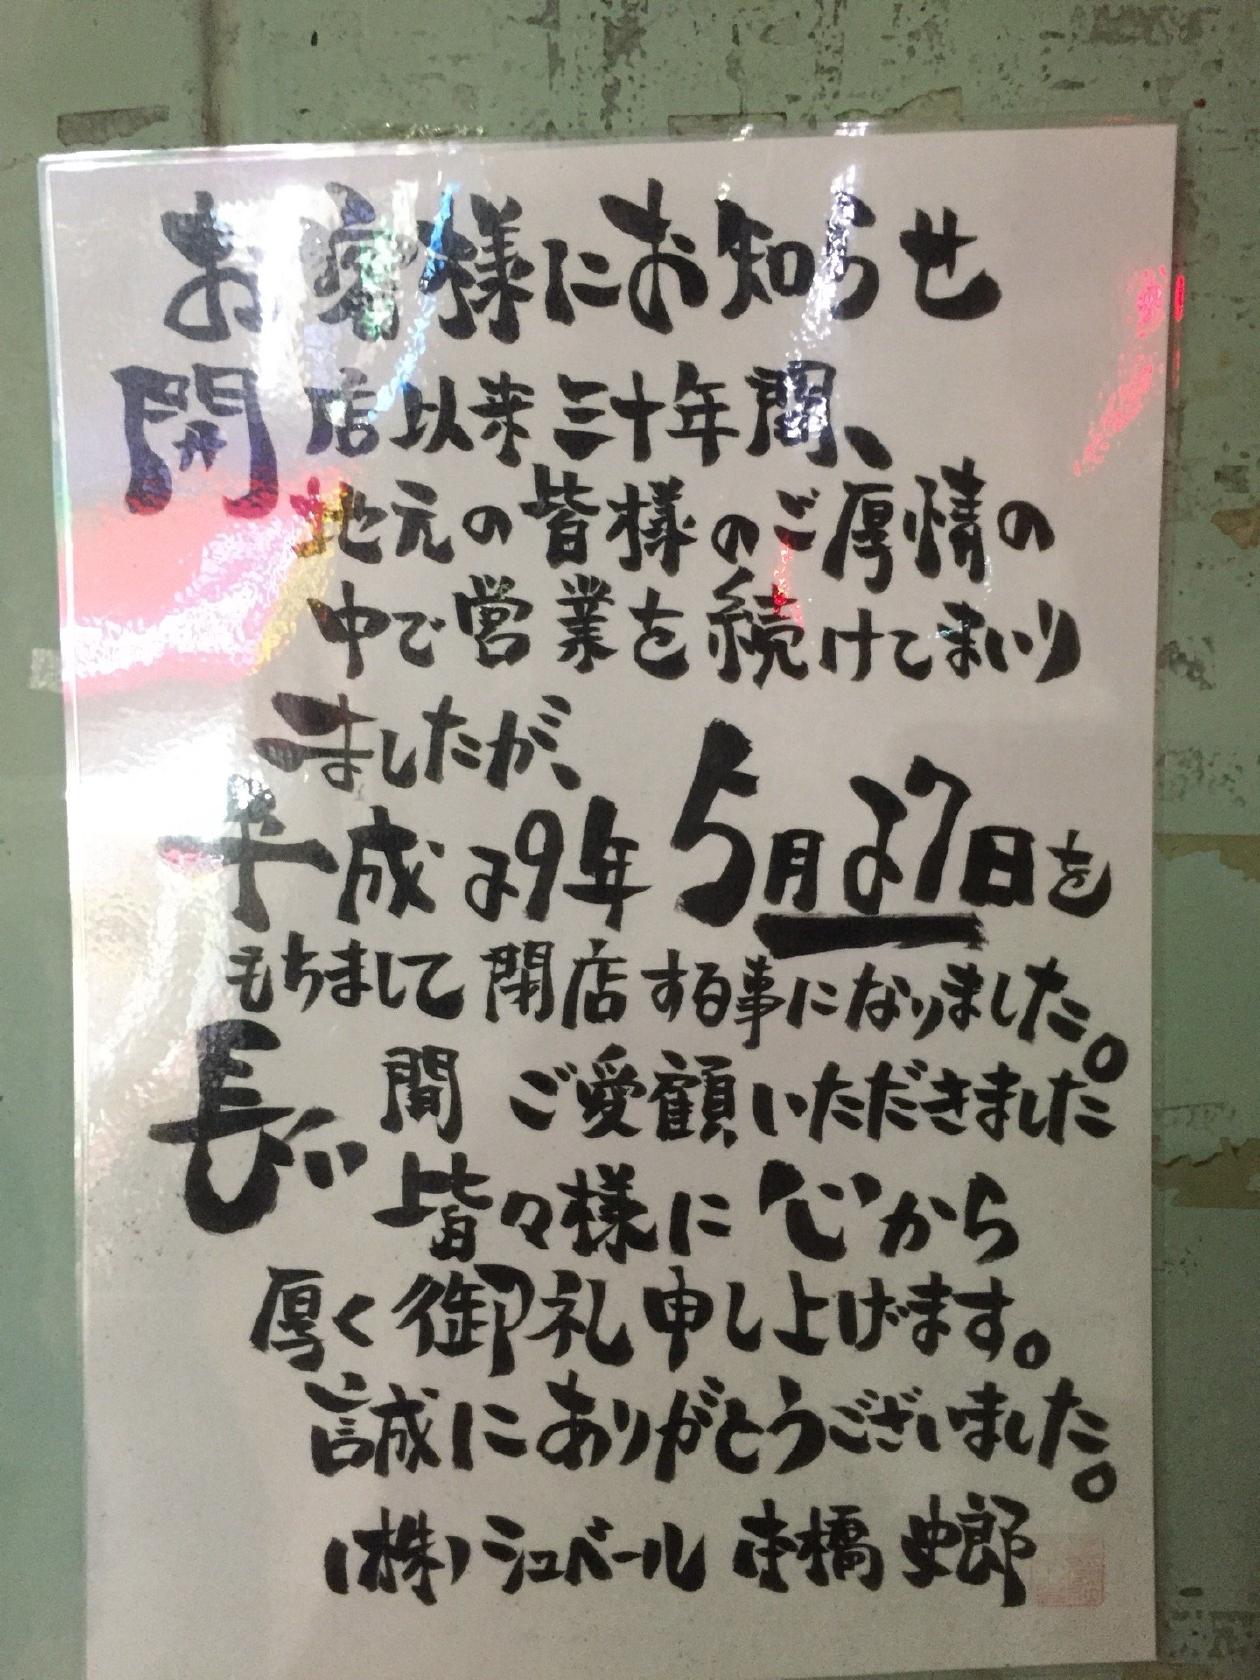 お客様にお知らせ
開店以来三十年間、
地元の皆様のご厚情の
中で営業を続けてまいり
ましたが、
平成29年5月27日を
もちまして閉店する事になりました。
長い間 ご愛顧いただきました
皆々様に心から
厚く御礼申し上げます。
誠にありがとうございました。
(株)シュベール 本橋 史郎